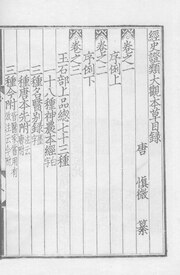 經史證類大觀本草目錄
唐 慎微 纂
卷之一
序例上
卷之二
序例下
卷之三
玉石部上品總七十三種
一十八種神農本經
三種名醫別錄
三種唐本先附
三種今附